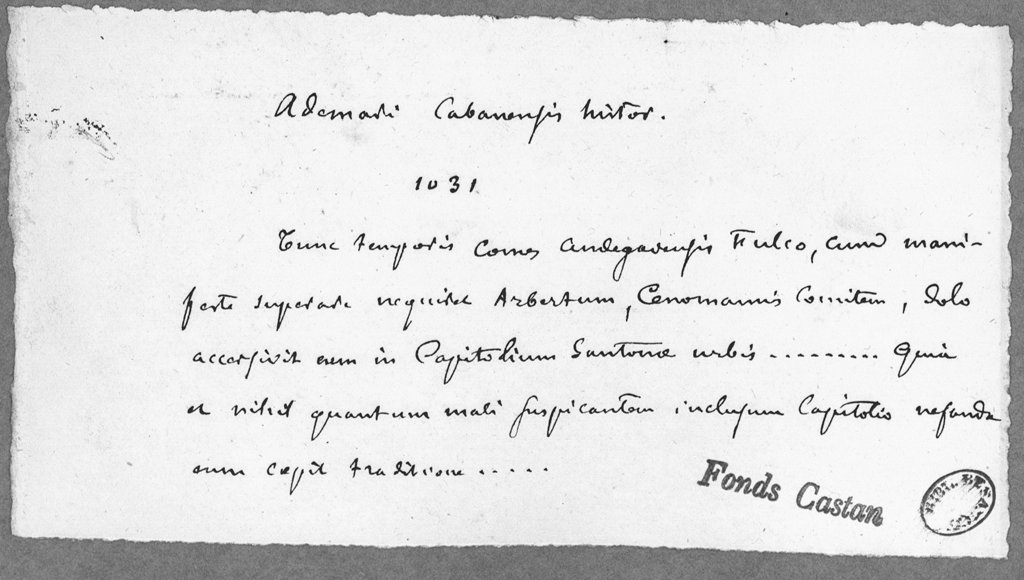 Ademari Cabanensis histor.
1031
Tunc temporis Comes Andegavensis Fulco, cum mani-
feste superare nequiret Arbertum, Cenomannis Comitem, dolo
accersivit eum in Capitolium Santonæ urbis ......... Quia
et nihil quantum mali suspicantem inclusum Capitolio nefanda
eum cepit traditione .....
Fonds Castan
BIBL. BESANÇON